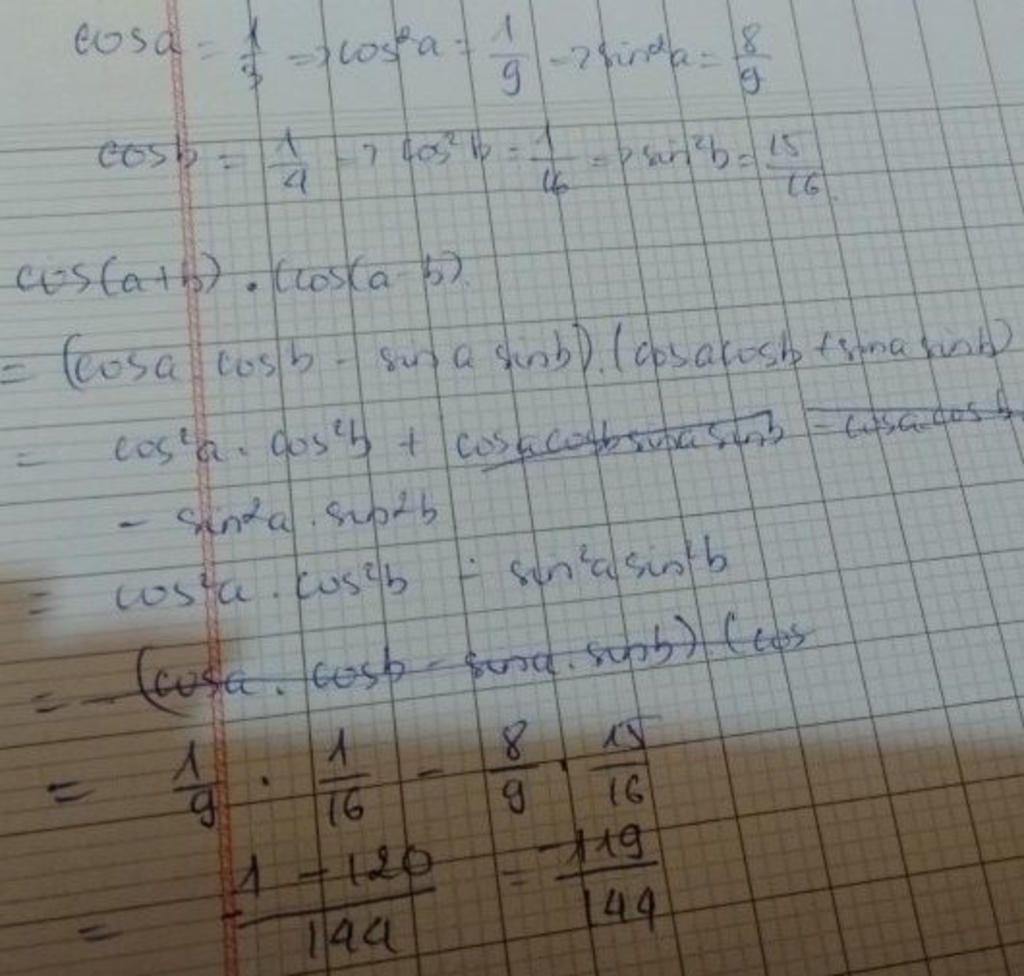 cosa = 1/3 => cos²a = 1/9 -> sin²a = 8/9
cosb = 1/4 -> cos²b = 1/16 => sin²b = 15/16
cos(a+b) . (cos(a-b)
= (cosa cosb - sin a sinb).(cosacosb + sina sinb)
= cos²a . cos²b + cosacosbsinasinb - cosa.cosb
- sin²a . sin²b
= cos²a . cos²b - sin²a sin²b
= - (cosa . cosb - sina . sinb) (cos
= 1/9 . 1/16 - 8/9 . 15/16
= 1 - 120/144 = -119/144